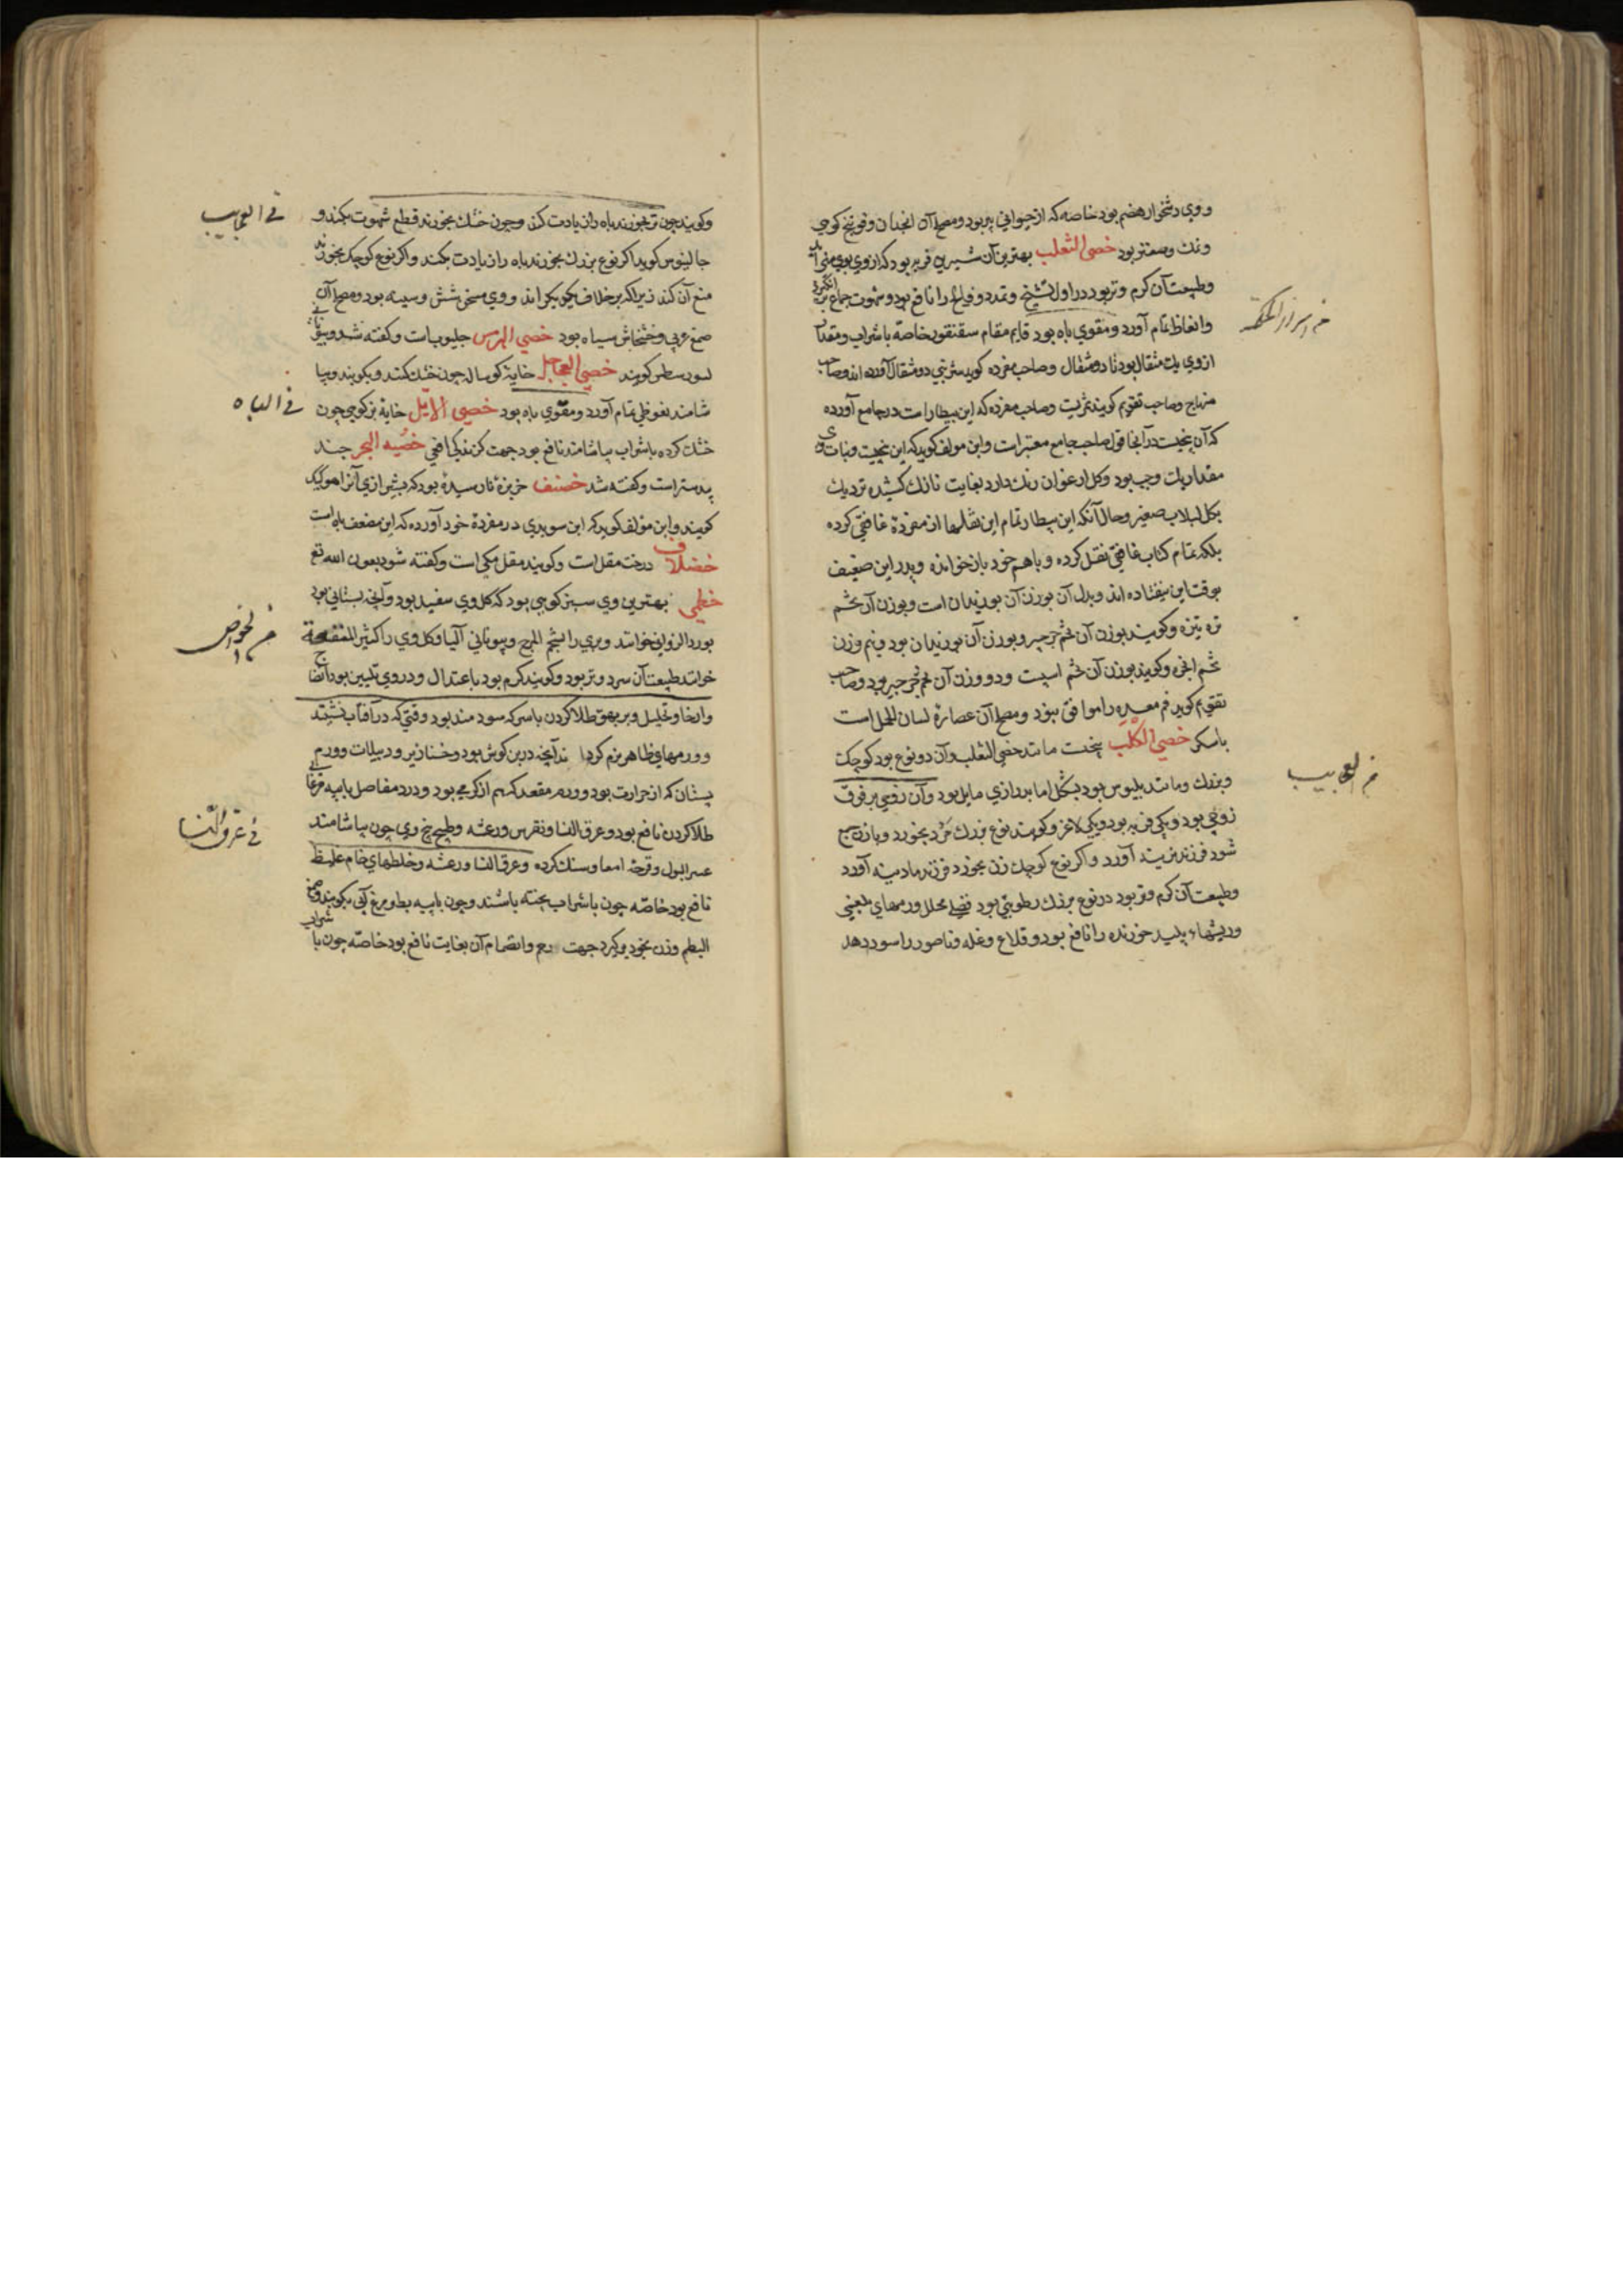 و وی دشخوار هضم بود خاصه که از حیوانی پیر بود و مصلح آن انجدان و فوتنج کوهی
و نمک و صعتر بود خصی الثعلب بهترین آن شیرین فربه بود که از وی بوی منی آید
وطبیعت آن کرم و تر بود در اول تشنج و تمدد و فالج را نافع بود و شهوت جماع
وانعاظ تمام آورد و مقوی باه بود قایم مقام سقنقور خاصه با شراب و مقدار
از وی یک مثقال بود تا دو مثقال و صاحب مفرده کوید شربتی دو مثقال آورده اند وصاحب
منهاج وصاحب تقویم کویند شربت وصاحب مفرده که ابن بیطار است در جامع آورده
که آن بیخیست در آنجا قول صاحب جامع معتبر است وابن مولف کوید که این بیخیست و نبات وی
مقدار یک وجب بود وکل ارغوان رنک دارد بغایت نازک کشیده نزدیک
بکل لبلاب صغیر وحال آنکه ابن بیطار تمام این نقلها از مفردهٔ غافقی کرده
بلکه تمام کتاب غافقی نقل کرده و باهم خود باز خوانده و پدر این ضعیف
بوقت این نیفتاده اند وبدل آن بوزن آن بوزیدان است و بوزن آن تخم
تره تیزه وکویند بوزن آن تخم جرجیر وبوزن آن بوزیدان بود ونیم وزن
تخم انجره وکویند بوزن آن تخم اسپست ودو وزن آن تخم جرجیر بود وصاحب
تقویم کوید فم معده را موافق نبود ومصلح آن عصارهٔ لسان الحمل است
باسکر خصی الکلب بیخیست مانند خصی الثعلب وآن دو نوع بود کوچک
وبزرک ومانند بلبوس بود بشکل اما بدرازی مایل بود وآن زوجی بر فوق
زوجی بود ویکی فربه بود ویکی لاغر وکویند نوع بزرک مرد بخورد وبا زن جمع
شود فرزند نرینه آورد واکر نوع کوچک زن بخورد فرزند مادینه آورد
وطبیعت آن کرم وتر بود در نوع بزرک رطوبتی بود فضلی محلل ورمهای بلغمی
وریشهاء پلید خورنده را نافع بود وقلاع ونمله وناصور را سود دهد
من اسرار الحکمة
من العجایب
وکویند چون تر بخورند باه را زیادت کند وچون خشک بخورند قطع شهوت بکند و
جالینوس کوید اکر نوع بزرک بخورند باه را زیادت بکند واکر نوع کوچک بخورند
منع آن کند زیرا که بر خلاف یکدیکراند و وی مسخن شش وسینه بود ومصلح آن
صمغ عربی وخشخاش سیاه بود خصی الهرس جلبوب است وکفته شد وبیونانی
لسورسطس کویند خصی العجاجیل خایهٔ کوساله چون خشک کنند وبکوبند وبیا
شامند نعوظی تمام آورد ومقوی باه بود خصی الایل خایهٔ بز کوهی چون
خشک کرده با شراب بیاشامند نافع بود جهت کزندکی افعی خصیه البحر جند
بیدستر است وکفته شد خضف خربزهٔ نارسیده بود که بشیرازی آنرا
کویند وابن مؤلف کوید که ابن سویدی در مفردهٔ خود آورده که این مضعف باه است
خضلاف درخت مقل است وکویند مقل مکی است وکفته شود بعون الله تع
خطمی بهترین وی سبز کوهی بود که کل وی سفید بود وآنچه بستانی بود
بورد الزوانی خوانند وبری را شحم المرج وبیونانی آلثیا وکل وی را کثیر المنفعة
خوانند طبیعت آن سرد وتر بود وکویند کرم بود باعتدال ودر وی تلیین بود وانضاج
وارخا وتحلیل وبر بهق طلا کردن با سرکه سودمند بود وقتی که در آفتاب نشینند
و ورمهای ظاهر نرم کرداند آنچه در بن کوش بود وخنازیر ودبیلات وورم
پستان که از حرارت بود و ورم مقعد که هم از کرمی بود ودرد مفاصل با پیه مرغابی
طلا کردن نافع بود وعرق النسا ونقرس ورعشه وطبیخ بیخ وی چون بیاشامند
عسر البول وقرحهٔ امعا وسنک کرده وعرق النسا ورعشه وخلطهای خام غلیظ
نافع بود خاصه چون با شراب پخته باشند وچون با پیه بط ومرغ آبی بکوبند وصمغ
البطم وزن بخود برکیرد جهت رحم وانضمام آن بغایت نافع بود خاصه چون با شراب
فی العجایب
فی الباه
من الخواص
فی عرق النسا